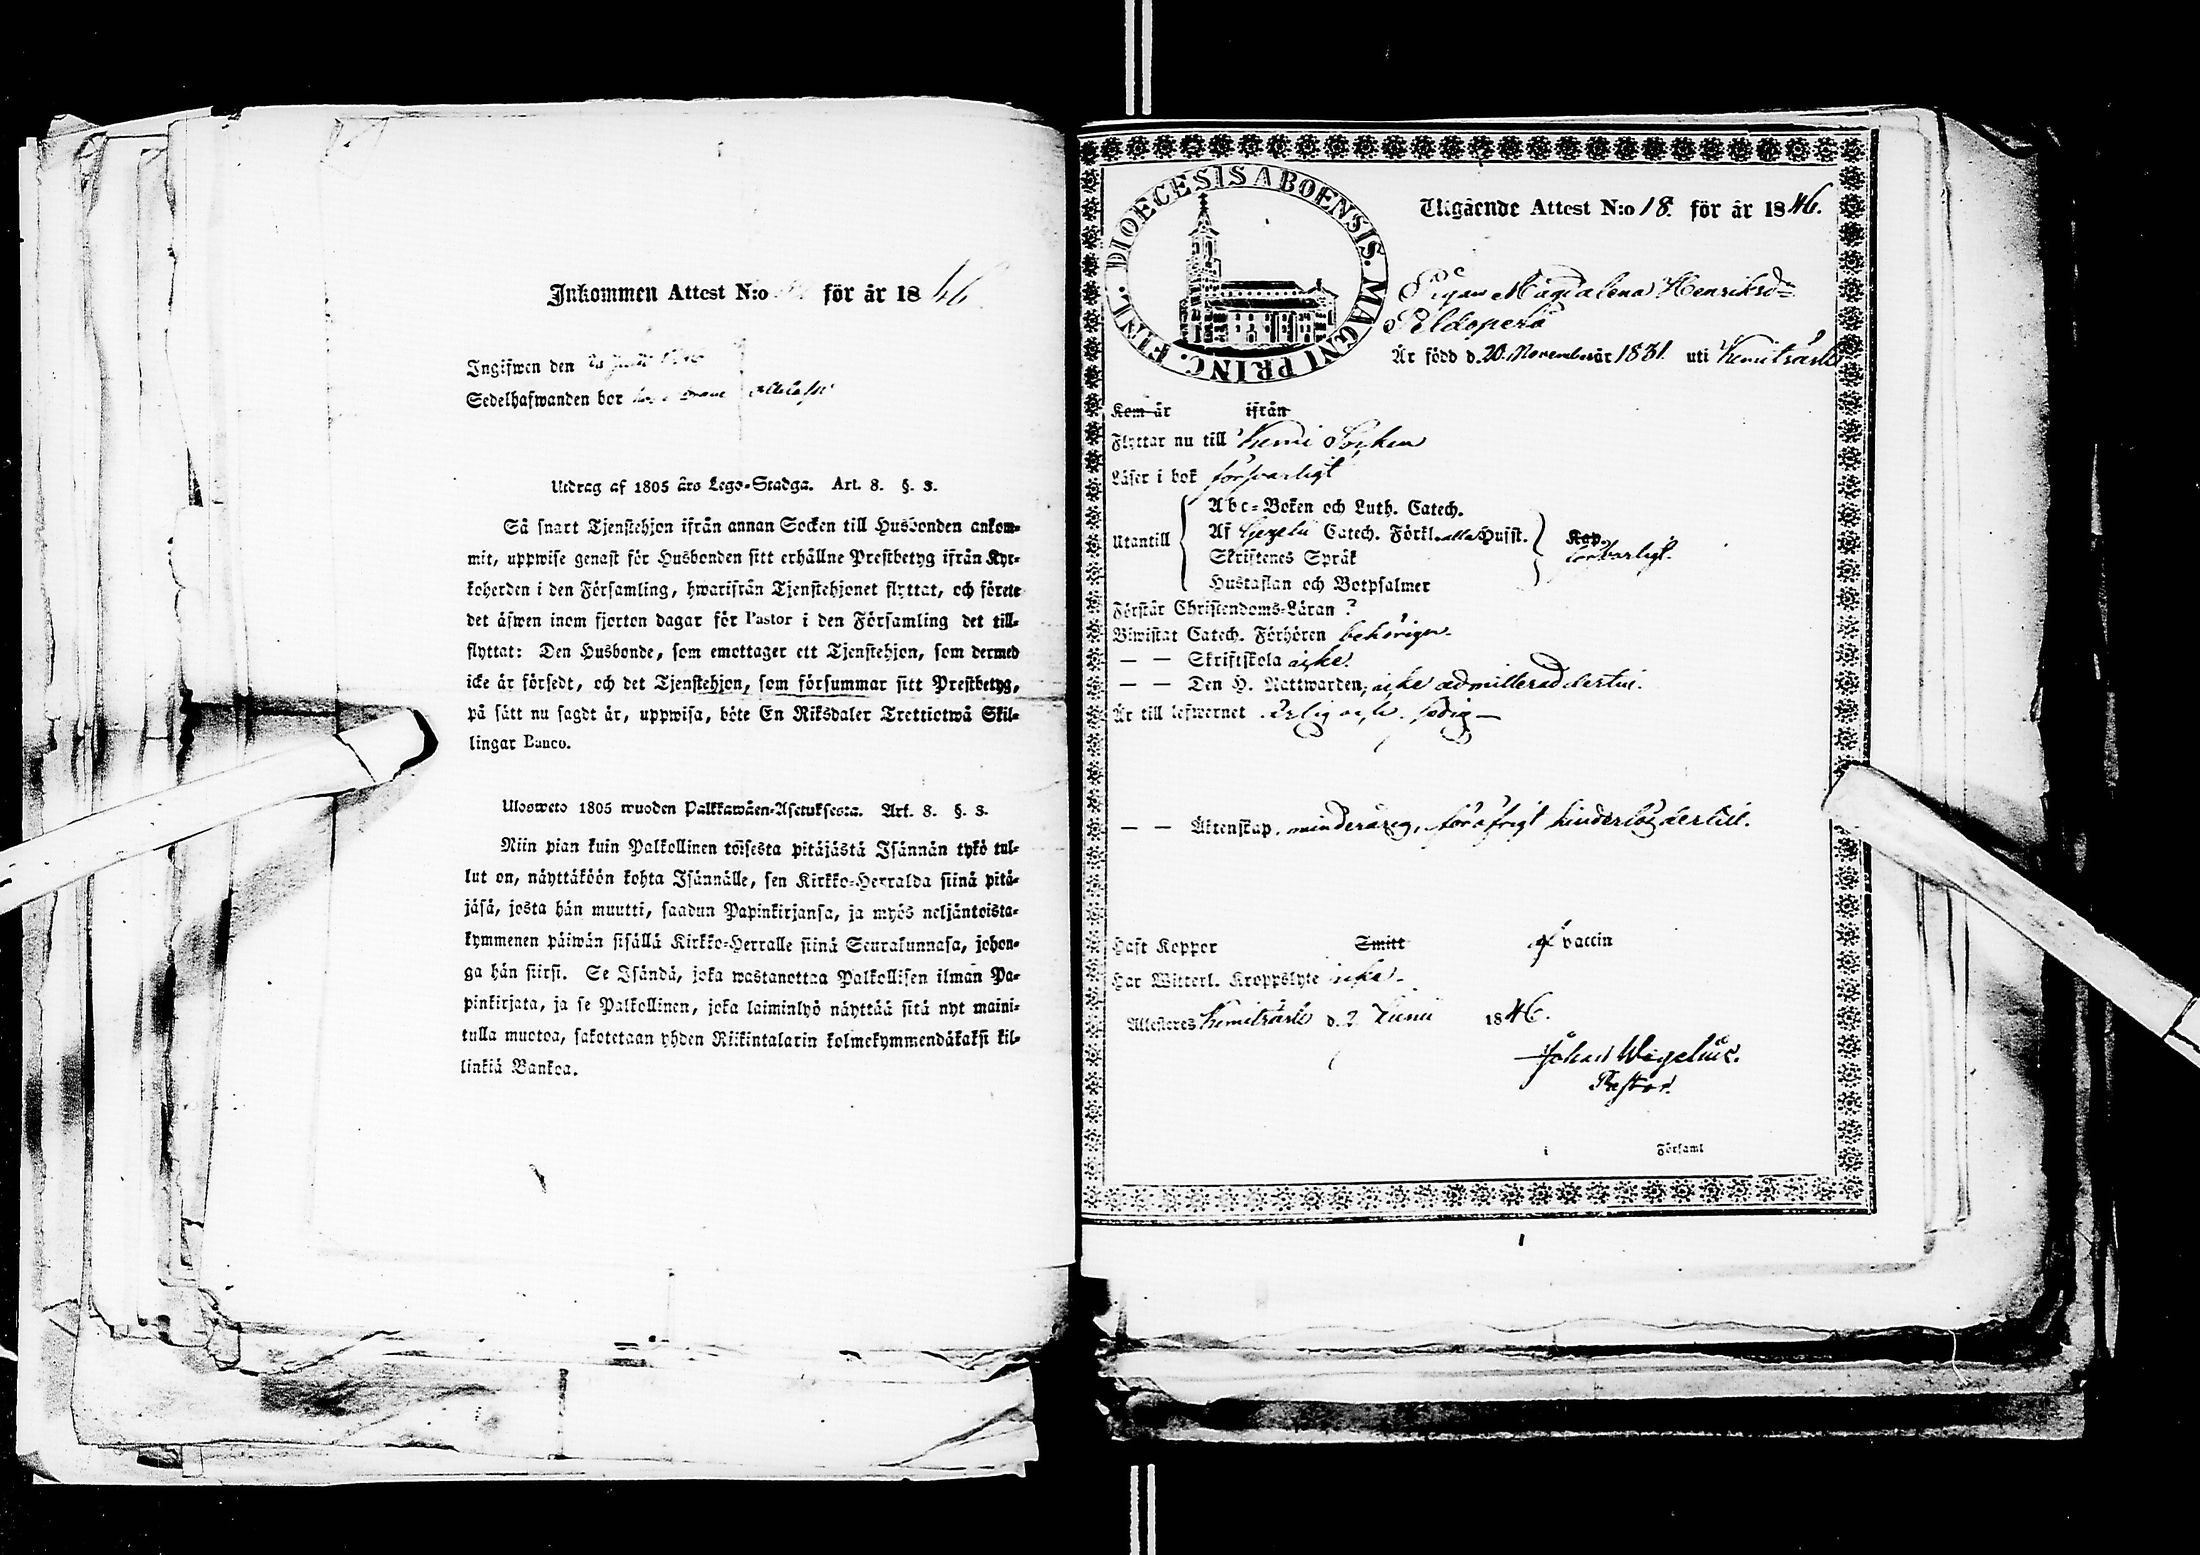 Inkommen Attest N:o för år 1846
Ingifwen den
Sedelhafwanden bor
Utdrag af 1805 års Lego-Stadga. Art. 8. §. 3.
Så snart Tjenstehjon ifrån annan Socken till Husbonden ankom-
mit, uppwise genast för Husbonden sitt erhållne Prestbetyg ifrån Kyr-
koherden i den Församling, hwarifrån Tjenstehjonet flyttat, och förete
det äfwen inom fjorton dagar för Pastor i den Församling det till-
flyttat: Den Husbonde, som emottager ett Tjenstehjon, som dermed
icke är försedt, och det Tjenstehjon, som försummar sitt Prestbetyg,
på sätt nu sagdt är, uppwisa, böte En Riksdaler Trettiotwå Skil-
lingar Banco.
Ulosweto 1805 wuoden Palkkawäen-Asetuksesta. Art. 8. §. 3.
Niin pian kuin Palkollinen toisesta pitäjästä Isännän tykö tul-
lut on, näyttäköön kohta Isännälle, sen Kirkko-Herralda siinä pitä-
jäsä, josta hän muutti, saadun Papinkirjansa, ja myös neljäntoista-
kymmenen päiwän sisällä Kirkko-Herralle siinä Seurakunnasa, johon-
ga hän siirsi. Se Isändä, joka wastanottaa Palkollisen ilman Pa-
pinkirjata, ja se Palkollinen, joka laiminlyö näyttää sitä nyt maini-
tulla muotoa, sakotetaan yhden Riikintalarin kolmekymmendäkaksi kil-
linkiä Bankoa.
DIOECESIS ABOENSIS. MAGNI PRINC. FINL.
Utgående Attest N:o 18. för år 1846.
Pigan Magdalena Henriksd:
Är född d. 20. November år 1831. uti Kemiträsk
Kom år ifrån
Flyttar nu till Kemi Socken
Läser i bok försvarligt
Abc-Boken och Luth. Catech.
Utantill Af Gezelii Catech. Förkl. alla Hufst. Kap.
Skriftenes Språk försvarligt.
Hustaflan och Botpsalmer
Förstår Christendoms-Läran ?
Biwistat Catech. Förhören behörigen.
— — Skriftskola icke.
— — Den H. Nattwarden, icke admitterad dertill.
Är till lefwernet ärlig och sedig —
— — Äktenskap, minderårig, föröfrigt hinderlös dertill.
Haft Koppor Smitt af vaccin
Har Witterl. Kroppslyte icke.
Attesteres Kemiträsk d. 2 Junii 1846.
Johan Wegelius.
Pastor.
i Församl